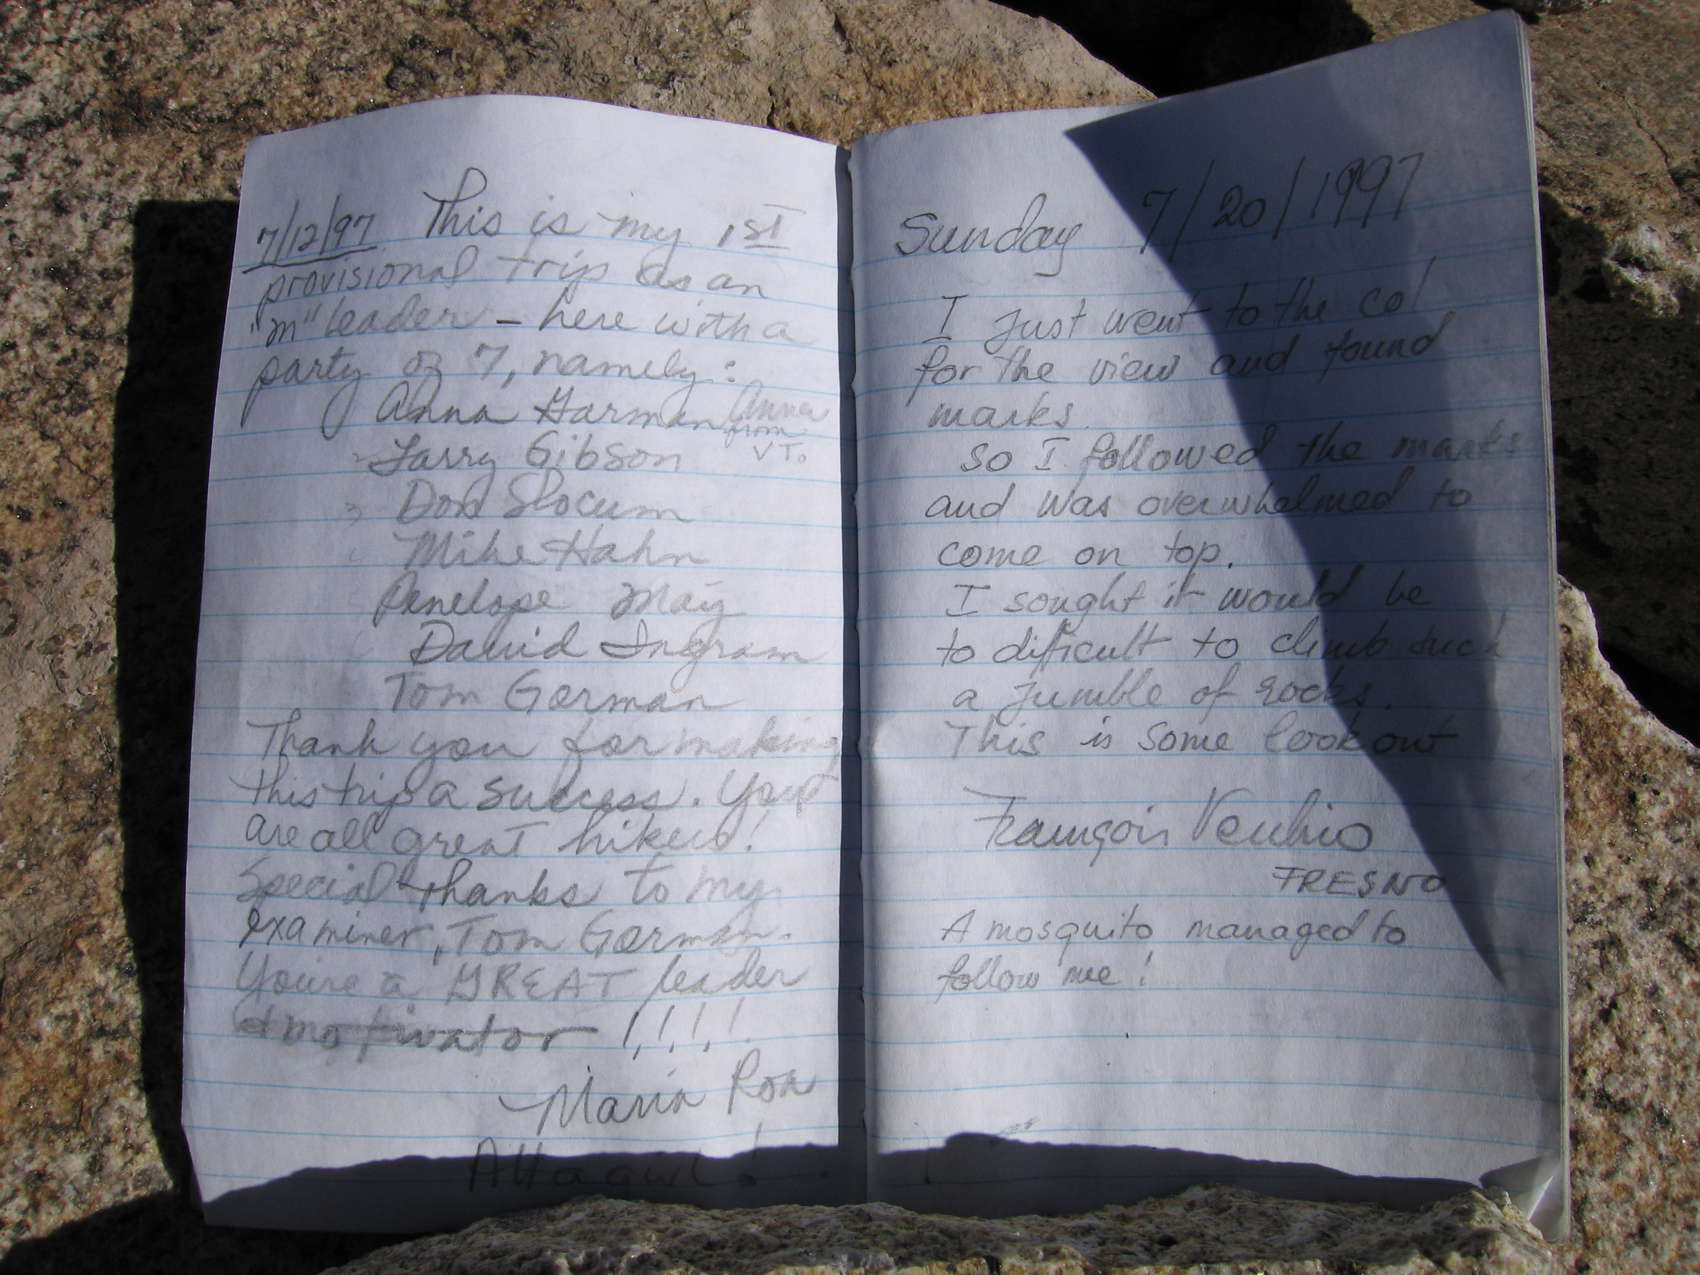 7/12/97 This is my 1ST
provisional trip as an
"M" leader – here with a
party of 7, namely:
Anna Garman Anna
from
VT.
Larry Gibson
Don Slocum
Mike Hahn
Penelope May
David Ingram
Tom Gorman
Thank you for making
this trip a success. You
are all great hikers!
Special thanks to my
examiner, Tom Gorman.
You're a GREAT leader
& motivator !!!!
Maria Ron
Attagirl!
Sunday 7/20/1997
I just went to the col
for the view and found
marks.
So I followed the marks
and was overwhelmed to
come on top.
I sought it would be
to dificult to climb such
a jumble of rocks.
This is some lookout
François Vecchio
FRESNO
A mosquito managed to
follow me!